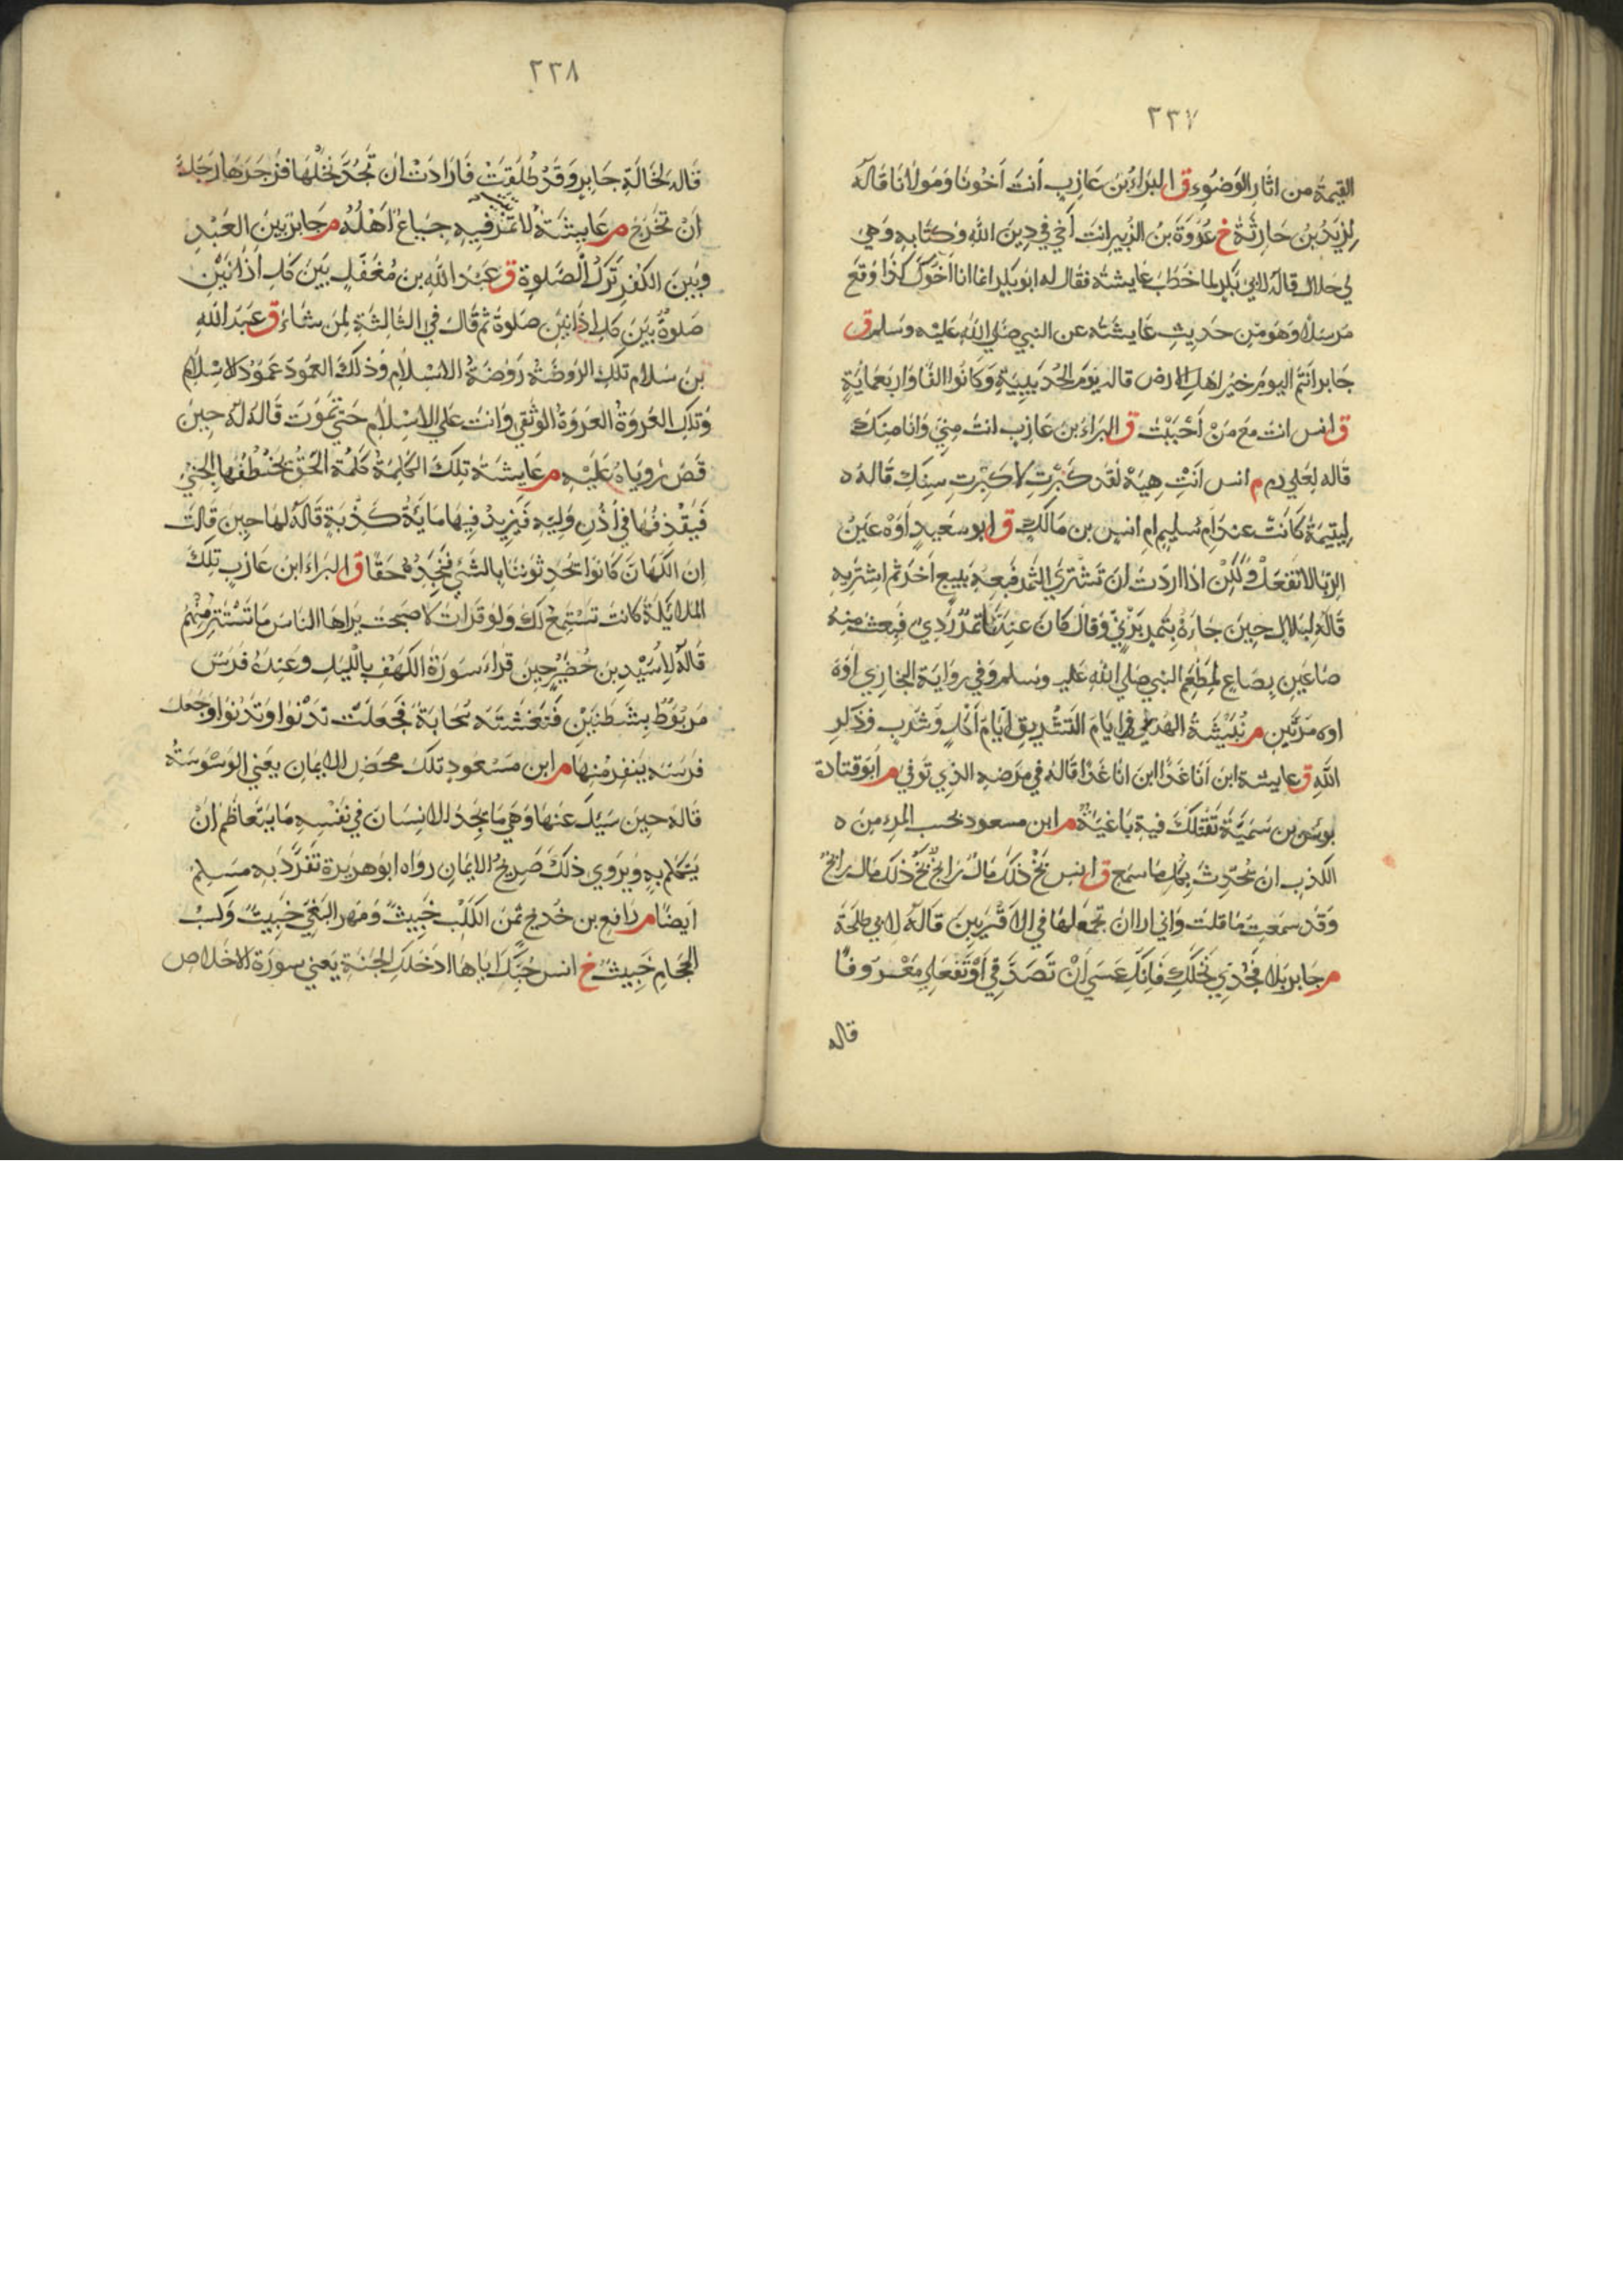 ٢٣٧
القيمة من اثار الوضوء ق البراء بن عازب انت اخونا ومولانا قاله
لزيد بن حارثة خ عروة بن الزبير انت أخي في دين الله وكتابه وهي
لي حلال قاله لابي بكر لما خطب عايشة فقال له ابو بكر انما انا اخوك كذا وقع
مرسلا وهو من حديث عايشة عن النبي صلي الله عليه وسلم ق
جابر انتم اليوم خير اهل الارض قاله يوم الحديبية وكانوا الفا واربعماية
ق انس انت مع من أحببت ق البراء بن عازب انت مني وانا منك
قاله لعلي رم م انس انت هيه لقد كبرت لا كبرت سنك قاله ه
ليتيمة كانت عند ام سليم ام انس بن مالك ق ابو سعيد اوه عين
الربا لا تفعل ولكن اذا اردت ان تشتري التمر فبعه ببيع آخر ثم اشتر به
قاله لبلال حين جاءه بتمر برني وقال كان عندنا تمر ردي فبعت منه
صاعين بصاع لمطعم النبي صلي الله عليه وسلم وفي رواية البخاري أوه
اوه مرتين م نبيشة الهذلي ايام التشريق ايام أكل وشرب وذكر
الله ق عايشة اين انا غدا اين انا غدا قاله في مرضه الذي توفي م ابو قتادة
بوس بن سمية تقتلك فية باغية م ابن مسعود بحسب المرء من ه
الكذب ان يحدث بكل ما سمع ق انس بخ ذلك مال رابح بخ ذلك مال رابح
وقد سمعت ما قلت واني ارا ان تجعلها في الاقربين قاله لابي طلحة
م جابر بلا فجدي نخلك فانك عسي أن تصدقي أو تفعلي معروفا
قاله
٢٣٨
قاله لخالة جابر وقد طلقت فارادت ان تجد نخلها فزجرها رجل
ان تخرج م عايشة بيت لا تمر فيه جياع اهله م جابر بين العبد
وبين الكفر ترك الصلوة ق عبد الله بن مغفل بين كل اذانين
صلوة بين كل اذانين صلوة ثم قال في الثالثة لمن شاء ق عبد الله
بن سلام تلك الروضة روضة الاسلام وذلك العمود عمود الاسلام
وتلك العروة العروة الوثقي وانت علي الاسلام حتي تموت قاله له حين
قص روياه عليه م عايشة تلك الكلمة كلمة الحق يختطفها الجني
فيقذفها في أذن وليه فيزيد فيها ماية كذبة قاله لها حين قالت
ان الكهان كانوا يحدثوننا بالشي فنجده حقا ق البراء ابن عازب تلك
الملايكة كانت تستمع لك ولو قرات لاصبحت يراها الناس ما تستتر منهم
قاله لاسيد بن حضير حين قراء سورة الكهف بالليل وعنده فرس
مربوط بشطنين فتغشته سحابة فجعلت تدنوا وتدنوا وجعل
فرسه ينفر منها م ابن مسعود تلك محض الايمان يعني الوسوسة
قاله حين سيل عنها وهي ما يجد الانسان في نفسه ما يتعاظم ان
يتكلم به ويروي ذلك صريح الايمان رواه ابو هريرة تفرد به مسلم
ايضا م رافع بن خديج ثمن الكلب خبيث ومهر البغي خبيث وكسب
الحجام خبيث خ انس حبك اياها ادخلك الجنة يعني سورة الاخلاص